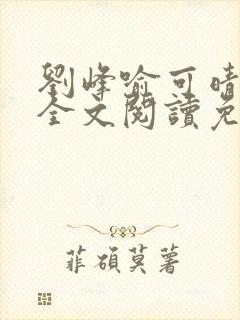 劉峰喻可晴
全文閱讀免
菲碩莫著